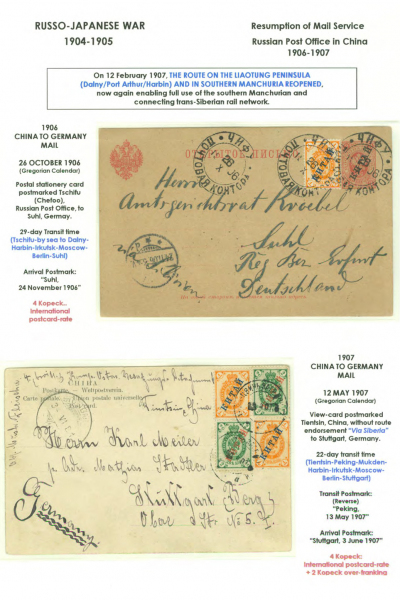 RUSSO-JAPANESE WAR
1904-1905
Resumption of Mail Service
Russian Post Office in China
1906-1907
On 12 February 1907, THE ROUTE ON THE LIAOTUNG PENINSULA
(Dalny/Port Arthur/Harbin) AND IN SOUTHERN MANCHURIA REOPENED,
now again enabling full use of the southern Manchurian and
connecting trans-Siberian rail network.
1906
CHINA TO GERMANY
MAIL
26 OCTOBER 1906
(Gregorian Calendar)
Postal stationery card
postmarked Tschifu
(Chefoo),
Russian Post Office, to
Suhl, Germay.
29-day Transit time
(Tschifu-by sea to Dalny-
Harbin-Irkutsk-Moscow-
Berlin-Suhl)
Arrival Postmark:
"Suhl,
24 November 1906"
4 Kopeck..
International
postcard-rate
ОТКРЫТОЕ ПИСЬМО
ПОЧТОВАЯ КОНТОРА
ЧИФУ
КИТАЙ
Herrn
Amtsgerichtsrat Kroebel
Suhl
Reg Bez Erfurt
Deutschland
1907
CHINA TO GERMANY
MAIL
12 MAY 1907
(Gregorian Calendar)
View-card postmarked
Tientsin, China, without route
endorsement "Via Siberia"
to Stuttgart, Germany.
22-day transit time
(Tientsin-Peking-Mukden-
Harbin-Irkutsk-Moscow-
Berlin-Stuttgart)
Transit Postmark:
(Reverse)
"Peking,
13 May 1907"
Arrival Postmark:
"Stuttgart, 3 June 1907"
4 Kopeck:
International postcard-rate
+ 2 Kopeck over-franking
CHINA
Postkarte Weltpostverein.
Carte postale Union postale universelle
Post card
КИТАЙ
Tientsin China
Herrn Karl Meier
Stuttgart (Berg)
Germany